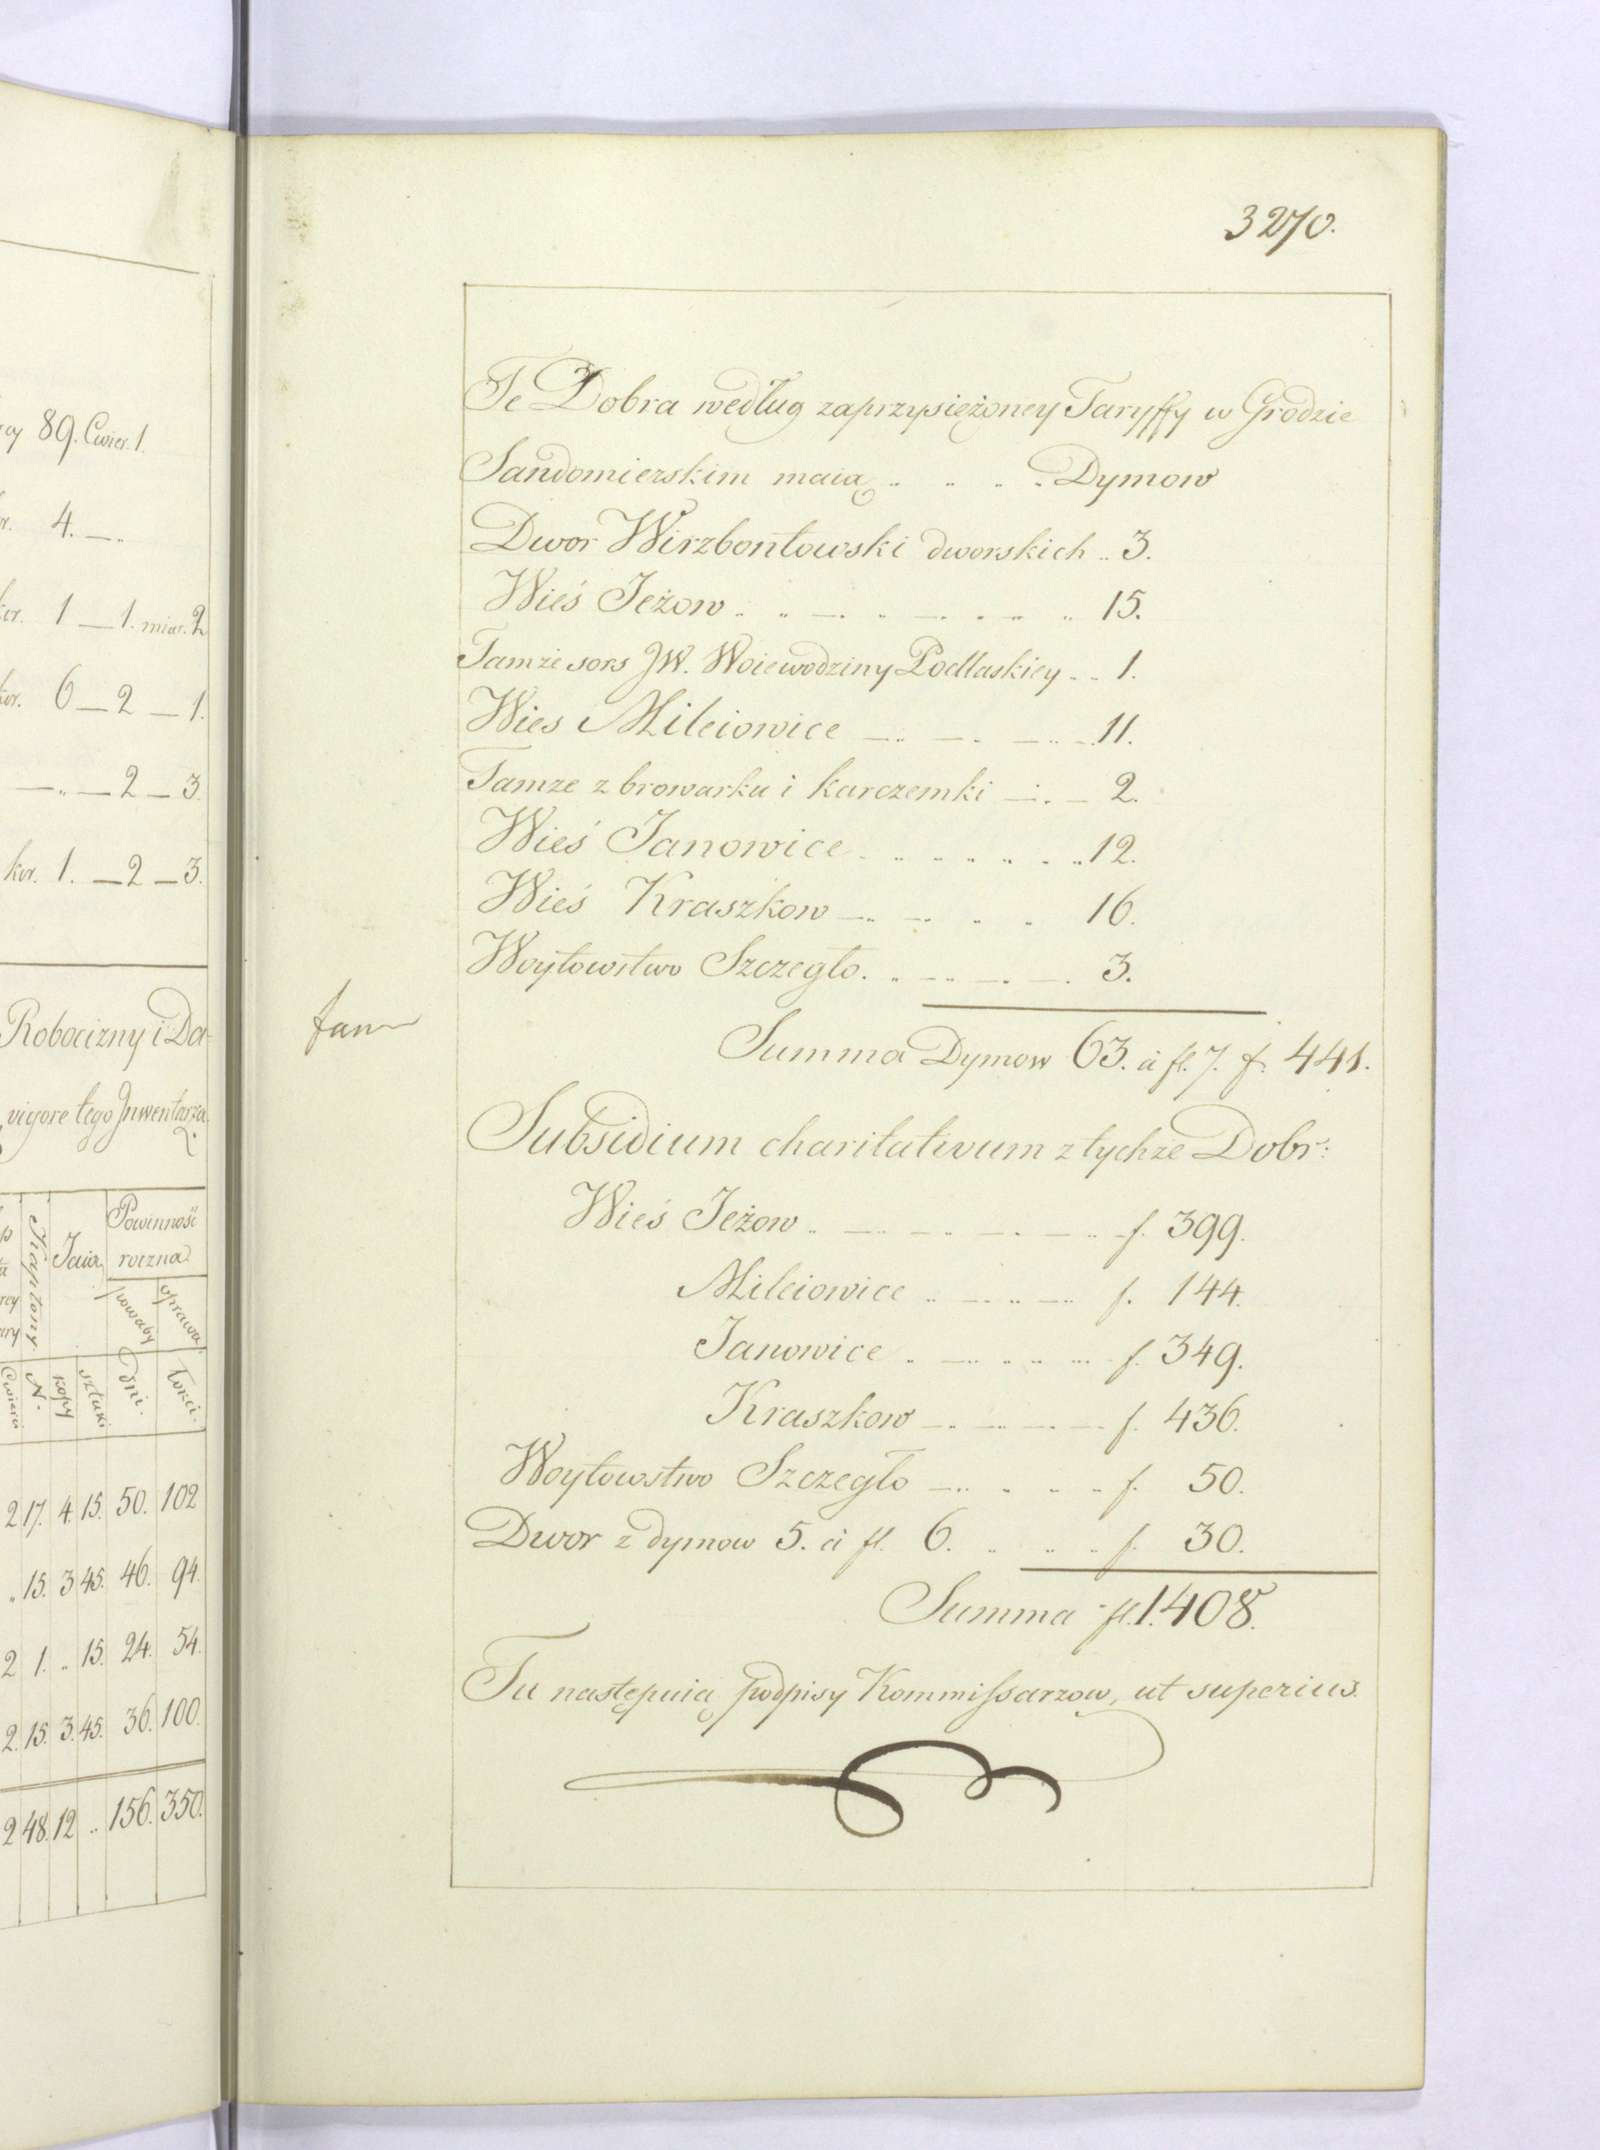 ey 89. Cwier. 1.
4. —.
kor. 1 — 1. miar. 2
kor. 6 — 2 — 1.
— „ — 2 — 3.
kor. 1. — 2 — 3.
Robocizny i Da-
vigore tego Jnwentarza
Kapłony Jaia Powinność
roczna
powaby oprawa
Cwierci N. kopy sztuki dni. łokci.
2 17. 4. 15. 50. 102
„ 15. 3 45. 46. 94.
2 1. „ 15. 24. 54.
2. 15. 3. 45. 36. 100.
2 48. 12 „ 156. 350.
3270.
Te Dobra według zaprzysiężoney Taryffy w Grodzie
Sandomierskim maią .. .. .. .. Dymow
Dwor Wirzbontowski dworskich .. 3.
Wieś Jeżow .. .. —. .. —. .. .. .. 15.
Tamże sors JW. Woiewodziny Podlaskiey .. .. 1.
Wies Mileiowice —.. —. —.. —. 11.
Tamze z browarku i karczemki —.. — 2.
Wieś Janowice .. .. .. .. .. .. .. 12.
Wieś Kraszkow —.. —.. .. .. 16.
Woytowstwo Szczegło. .. —.. —. —. 3.
Summa Dymow 63. á fl. 7. f. 441.
Subsidium charitativum z tychze Dobr:
Wieś Jeżow .. —. —.. —. —. .. —f. 399.
Mileiowice .. —.. .. —.. f. 144.
Janowice .. —.. .. .. ... f. 349.
Kraszkow —.. —.. —. — f. 436.
Woytowstwo Szczegło —.. .. .. .. f. 50.
Dwor z dymow 5. á fl. 6. .. .. .. f. 30.
Summa fl. 1.408.
Tu następuią podpisy Kommissarzow, ut superius.